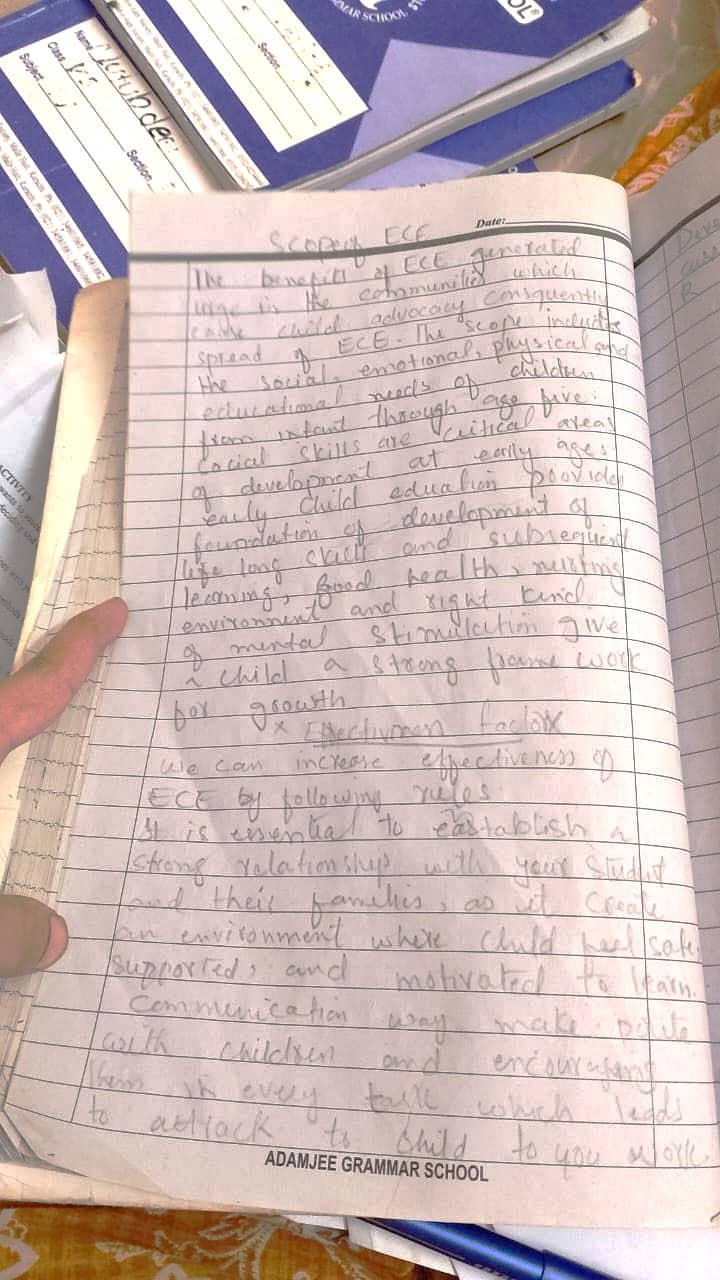 MAR SCHOOL
OL
Section
Name
Class
Subject
Section
ACTIVITY
Date:
Scope of ECE
The benefits of ECE generated
urge in the communities which
cause child advocacy consquently
spread of ECE. The scope include
the social, emotional, physical and
educational needs of children
from infant through age five.
social skills are critical areas
of development at early ages.
early child eduation provides
foundation of development of
life long skills and subsequent
learning, good health, nurting
environment and right kind
of mental stimulation give
a child a strong frame work
for growth
x Effectivness factors x
we can increase effectiveness of
ECE by following rules.
It is essential to eastablish a
strong relationship with your student
and their families, as it create
an environment where child feel safe,
supported, and motivated to learn.
Communication way make polite
with children and encouraging
them in every task which leads
to attrack to child to you work
ADAMJEE GRAMMAR SCHOOL